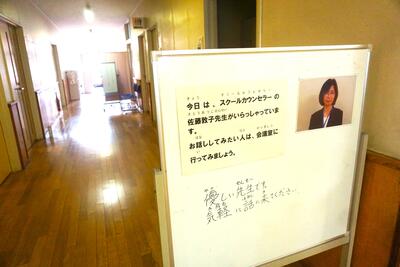 今日は、スクールカウンセラーの
佐藤敦子先生がいらっしゃっていま
す。
お話ししてみたい人は、会議室に
行ってみましょう。
優しい先生です。
気軽に話に来てください。